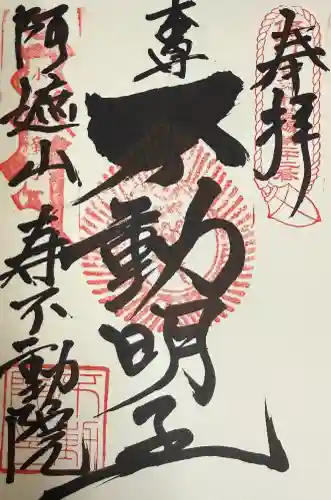 奉拝
尊
不動明王
阿遮山
寿不動院